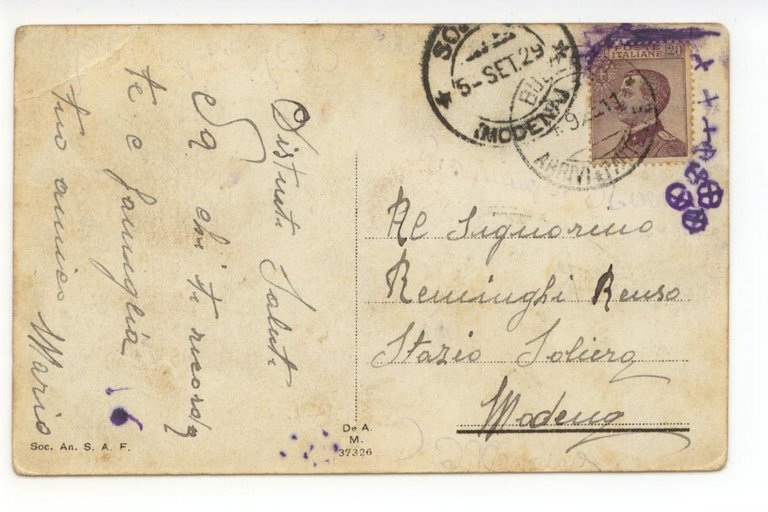 Distinti Saluti
Da chi ti ricorda
te e famiglia
tuo amico Mario
Soc. An. S. A. F.
De A.
M.
37326
5- SET. 29
(MODENA)
ARRIVI E PART
ITALIANE 20
Al Signorino
Reminghi Renso
Stazio Soliera
Modena